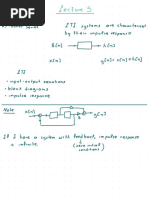 Lecture 5
LTI systems are characterised
by their impulse response
δ[n] h[n]
x[n] y[n] = x[n] * h[n]
LTI
- input-output equations
- block diagrams
- impulse response
Note:
x[n] y[n]
If I have a system with feedback, impulse response
is infinite.
(zero initial
conditions)